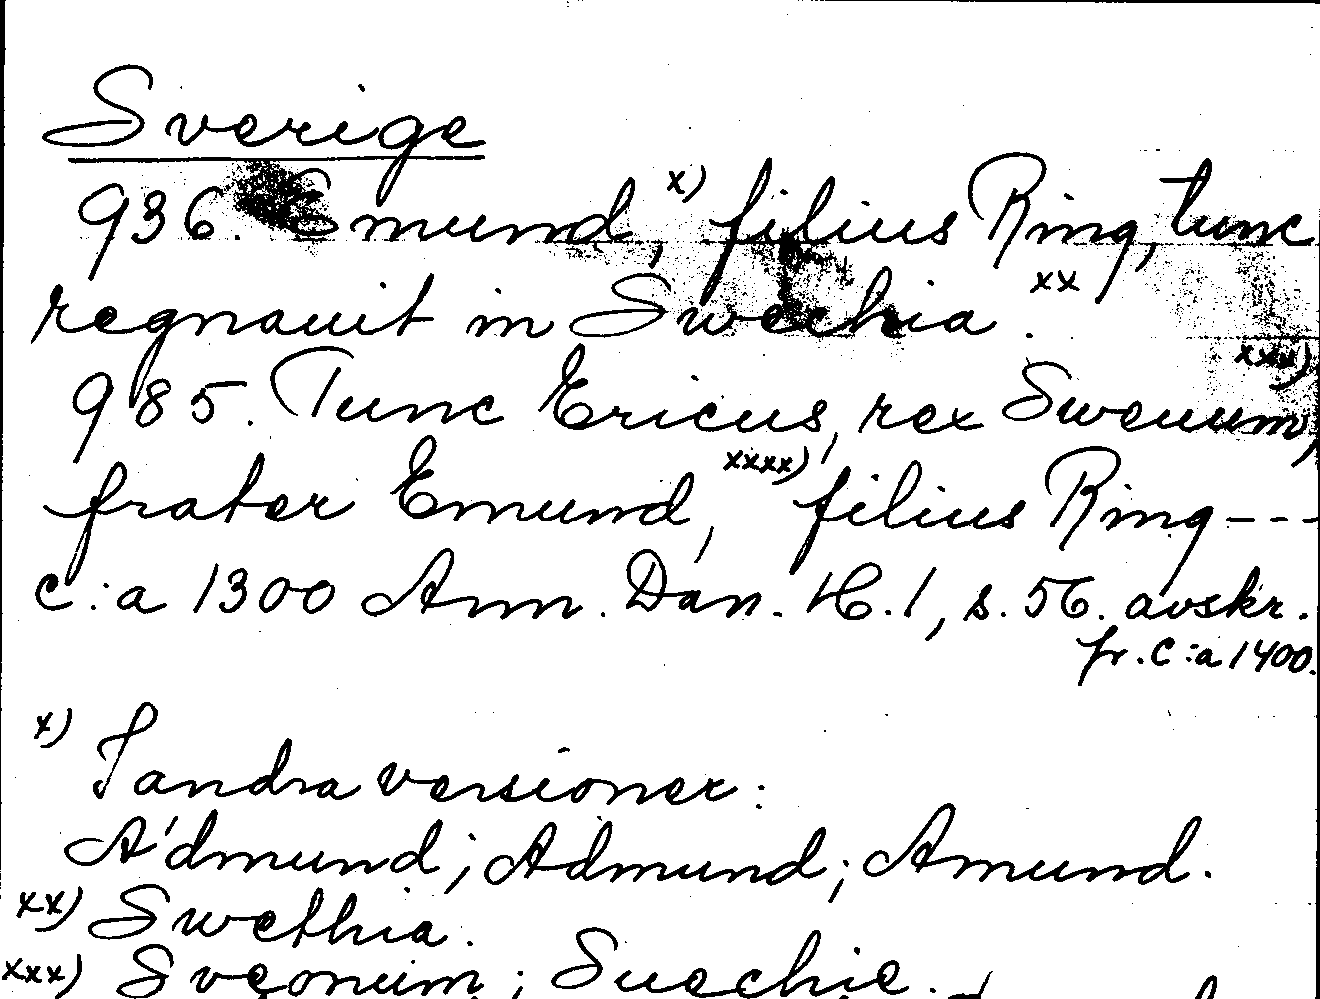 Sverige
936. Emund, x) filius Ring, tunc
regnauit in Swechia. xx
985. Tunc Ericus, rex Sweuum, xxx)
frater Emund, xxxx) filius Ring ---
c:a 1300 Ann. Dan. H.1, s. 56. avskr.
fr. c:a 1400.
x) I andra versioner:
A'dmund; Admund; Amund.
xx) Swethia.
xxx) Sveonum; Suechie.